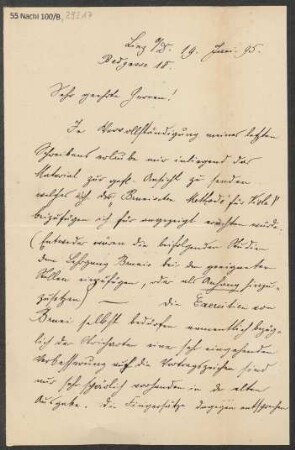 55 Nachl 100/B,
Linz a/D. 19. Juni 95.
Bedgasse 18.
Sehr geehrte Herren!
In Vervollständigung meines letzten
Schreibens erlaube mir inliegend das
Material zur gefl. Ansicht zu senden
welches ich der Methode für Viola
beizufügen ich für angezeigt erachten würde.
(Entweder wären die beifolgenden Studien
dem Lehrgang Bruni bei den geeigneten
Stellen einzufügen, oder als Anhang hinzu-
zusetzen) — Die Exercitien von
Bruni selbst bedürfen namentlich bezüg-
lich der Stricharten einer sehr eingehenden
Verbesserung auch die Vortragszeichen sind
nur sehr spärlich vorhanden in der alten
Ausgabe. Die Fingersätze dagegen entsprechen